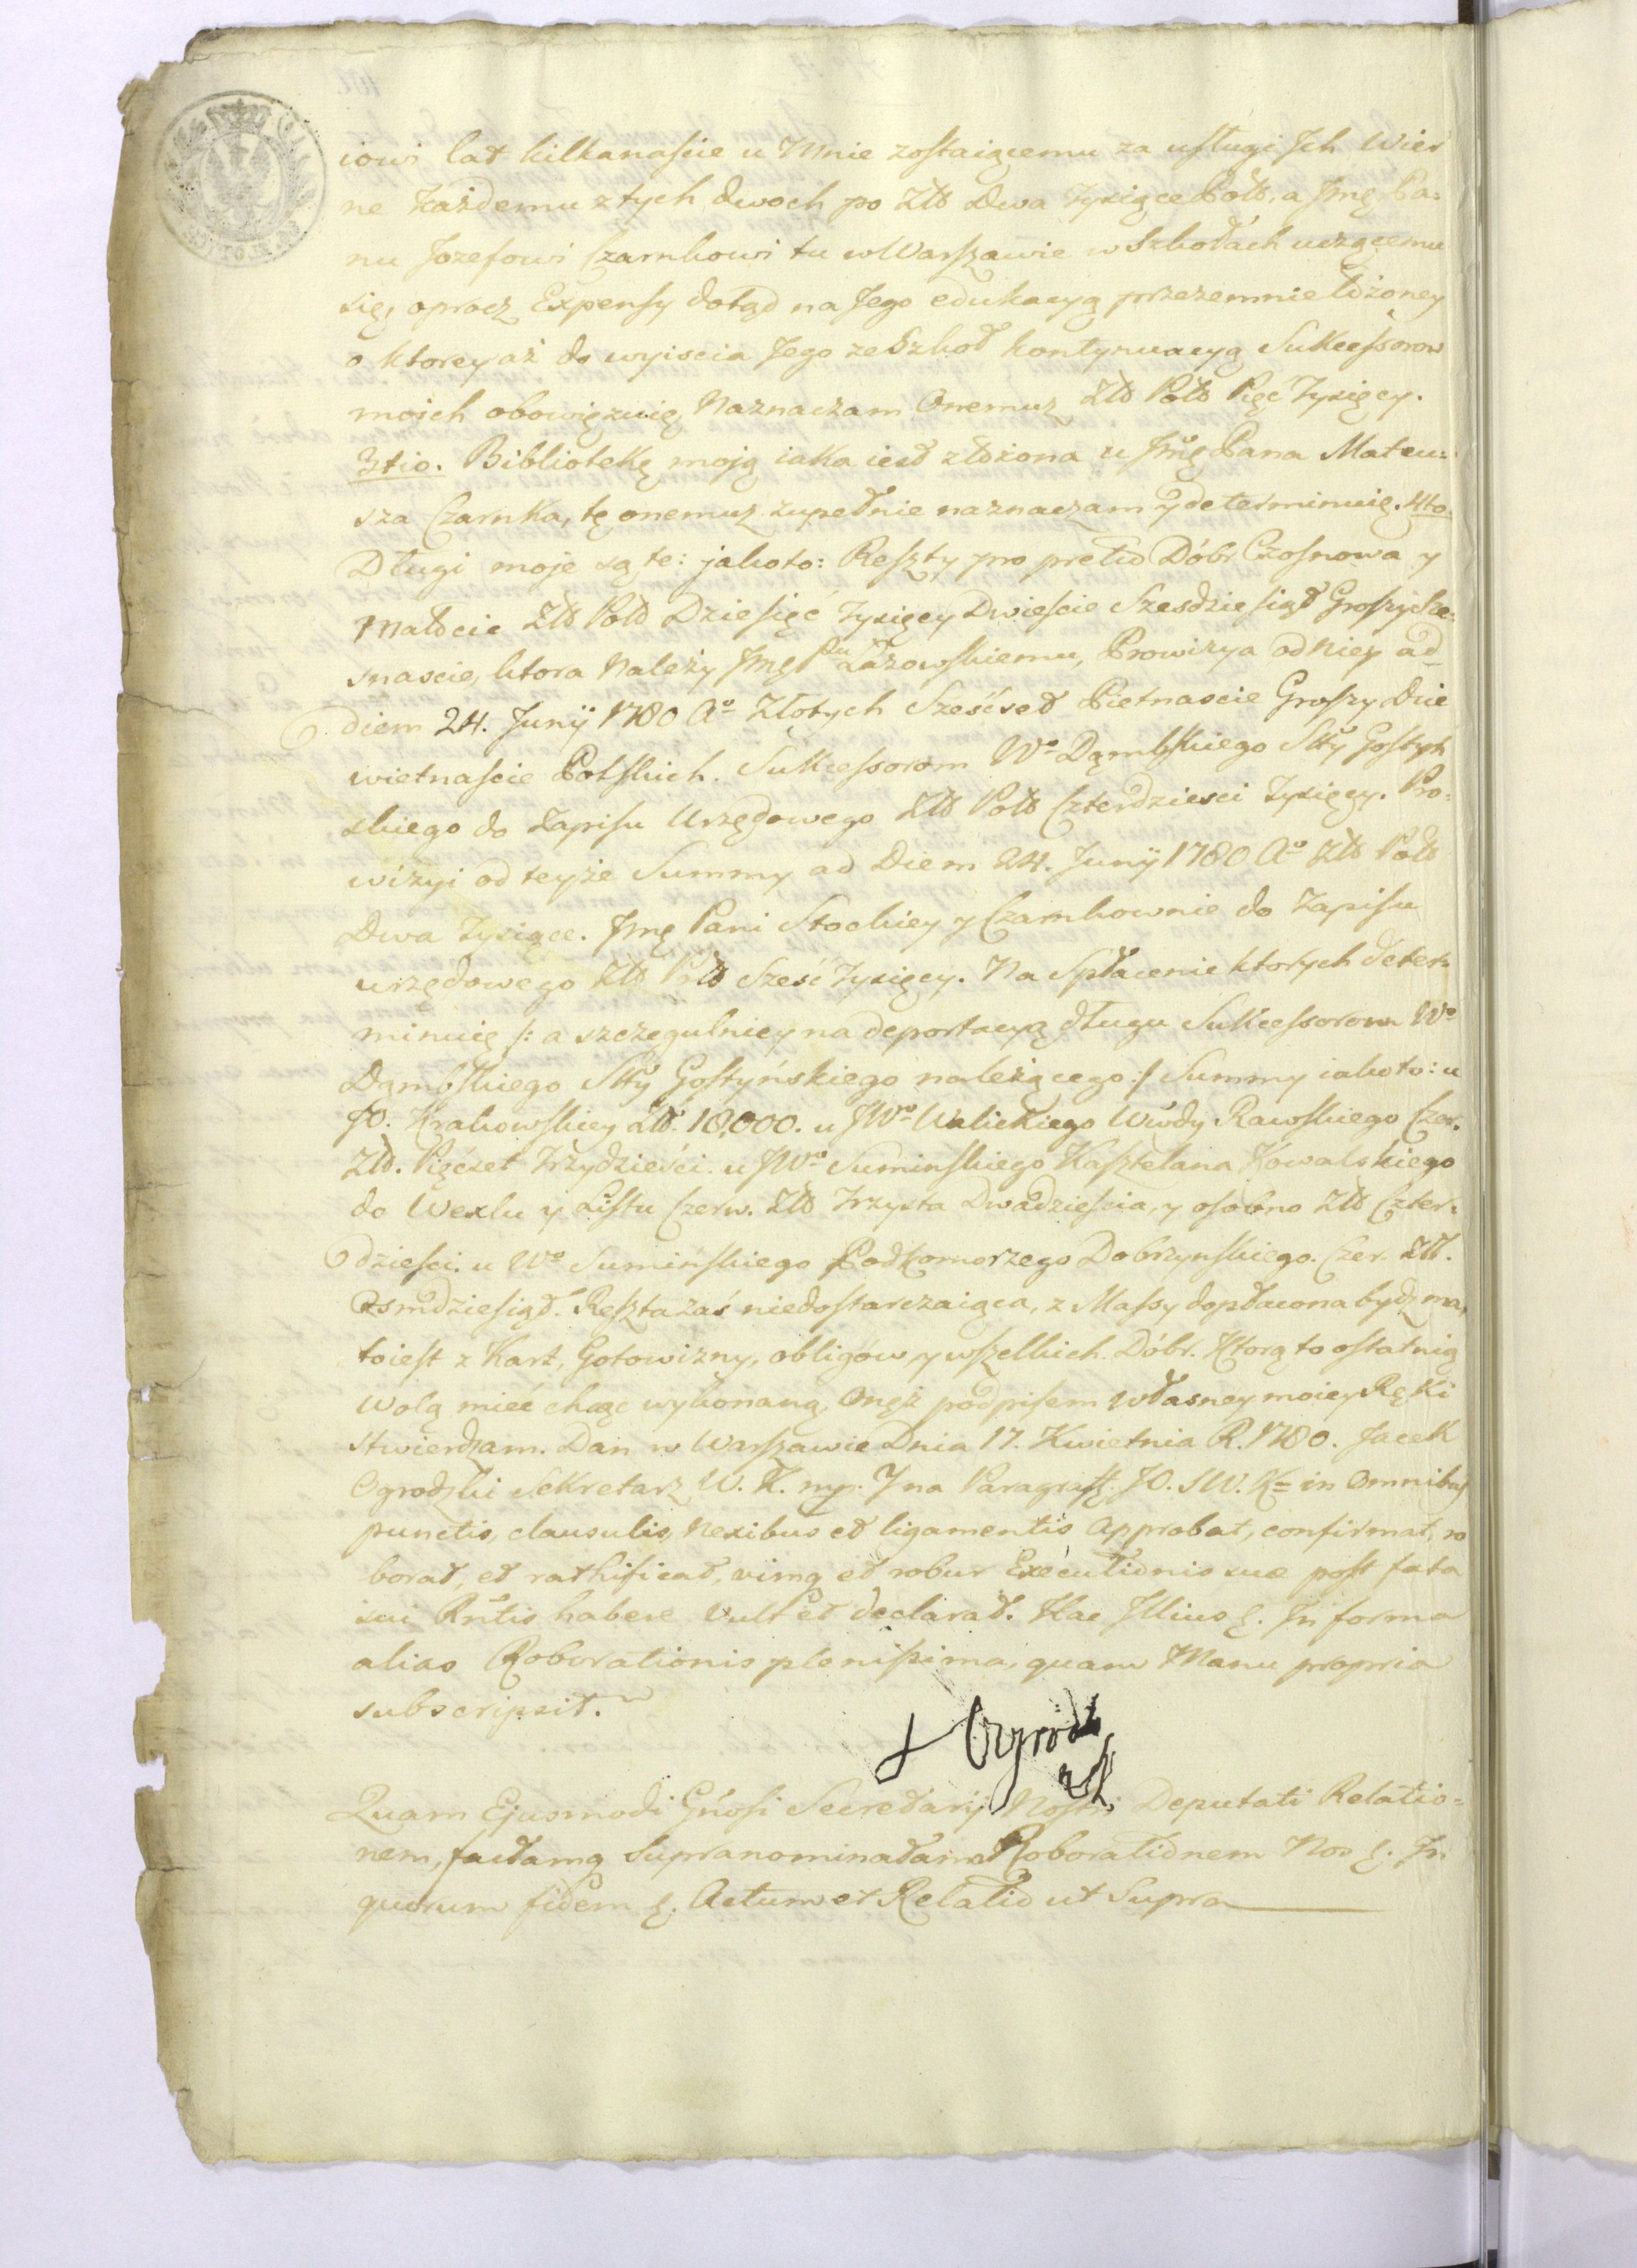 iowi lat kilkanaście u Mnie zostaiącemu za usługi Ich Wier
ne Każdemu z tych dwoch po Złł Dwa Tysiące Poll, a Jmę Pa=
nu Jozefowi Czarnkowi tu w Warszawie w Szkołach uczącemu
się, oprocz Expensy dotąd na Jego edukacyą przezemnie łożoney
o ktorey aż do wyiscia Jego ze Szkoł kontynuacyą Sukcessorow
moich obowięzuię, Naznaczam Onemuz Złł Poll Pięć Tysięcy.
3tio. Bibliotekę moją iaka iest złożona u Jmę Pana Mateu=
sza Czarnka, tę onemuz zupełnie naznaczam y determinuię. 4to.
Długi moje są te: jakoto: Reszty pro pretio Dóbr Czosnowa y
Małocic Złł Poll Dziesięć Tysięcy Dwieście Szesdziesiąt Groszy Sze=
snascie, ktora Należy Jmę Pu Łazowskiemu, Prowizya od Niey ad
diem 24. Junij 1780 Ao Złotych Sześćset Piętnascie Groszy Dzie
wietnaście Polskich. Sukcessorom Wo Dąmbskiego Stty Gostyń
skiego do Zapisu Urzędowego Złł Poll Czterdziesci Tysięcy. Pro=
wizyi od teyże Summy ad Diem 24. Junij 1780 Ao Złł Poll
Dwa Tysiące. Jmę Pani Stockiey y Czarnkownie do Zapisu
urzędowego Złł Poll Sześć Tysięcy. Na Spłacenie ktorych deter=
minuię /: a szczegulniey na deportacyą długu Sukcessorom Wo
Dąmbskiego Stty Gostyńskiego należącego :/ Summy iakoto: u
JO. Krakowskiey Złł. 18,000. u JWo Walickiego Wwdy Rawskiego Czer.
Złł. Pięćset Trzydzieści. u JWo Sumińskiego Kasztelana Kowalskiego
do Wexlu y Listu Czerw. Złł Trzysta Dwadzieścia, y osobno Złł Czter=
dzieści. u Wo Sumińskiego Podkomorzego Dobrzynskiego. Czer. Złł.
Osmdziesiąt. Reszta zaś niedostarczaiąca, z Massy dopłacona bydź ma,
toiest z Kart, Gotowizny, obligów, y wszelkich Dóbr. Ktorą to ostatnią
Wolą mieć chcąc wykonaną, Onęż podpisem własney moiey Ręki
stwierdzam. Dan w Warszawie Dnia 17. Kwietnia R. 1780. Jacek
Ogrodzki Sekretarz W. K. mp. In omnibus
punctis, clausulis, Nexibus et ligamentis Approbat, confirmat, ro
borat, et rathificat, vimq et robur Executionis suæ post fata
sui Rntis habere vult et declarat. Hac Illius &. In forma
alias Roborationis plenissima, quam Manu propria
subscripsit.
Ogrodz
Quam Ejusmodi Gnosi Secretarij Nostri Deputati Relatio=
nem, factamq Supranominatam Roborationem Nos &. In
quorum fidem &. Actum et Relatio ut Supra